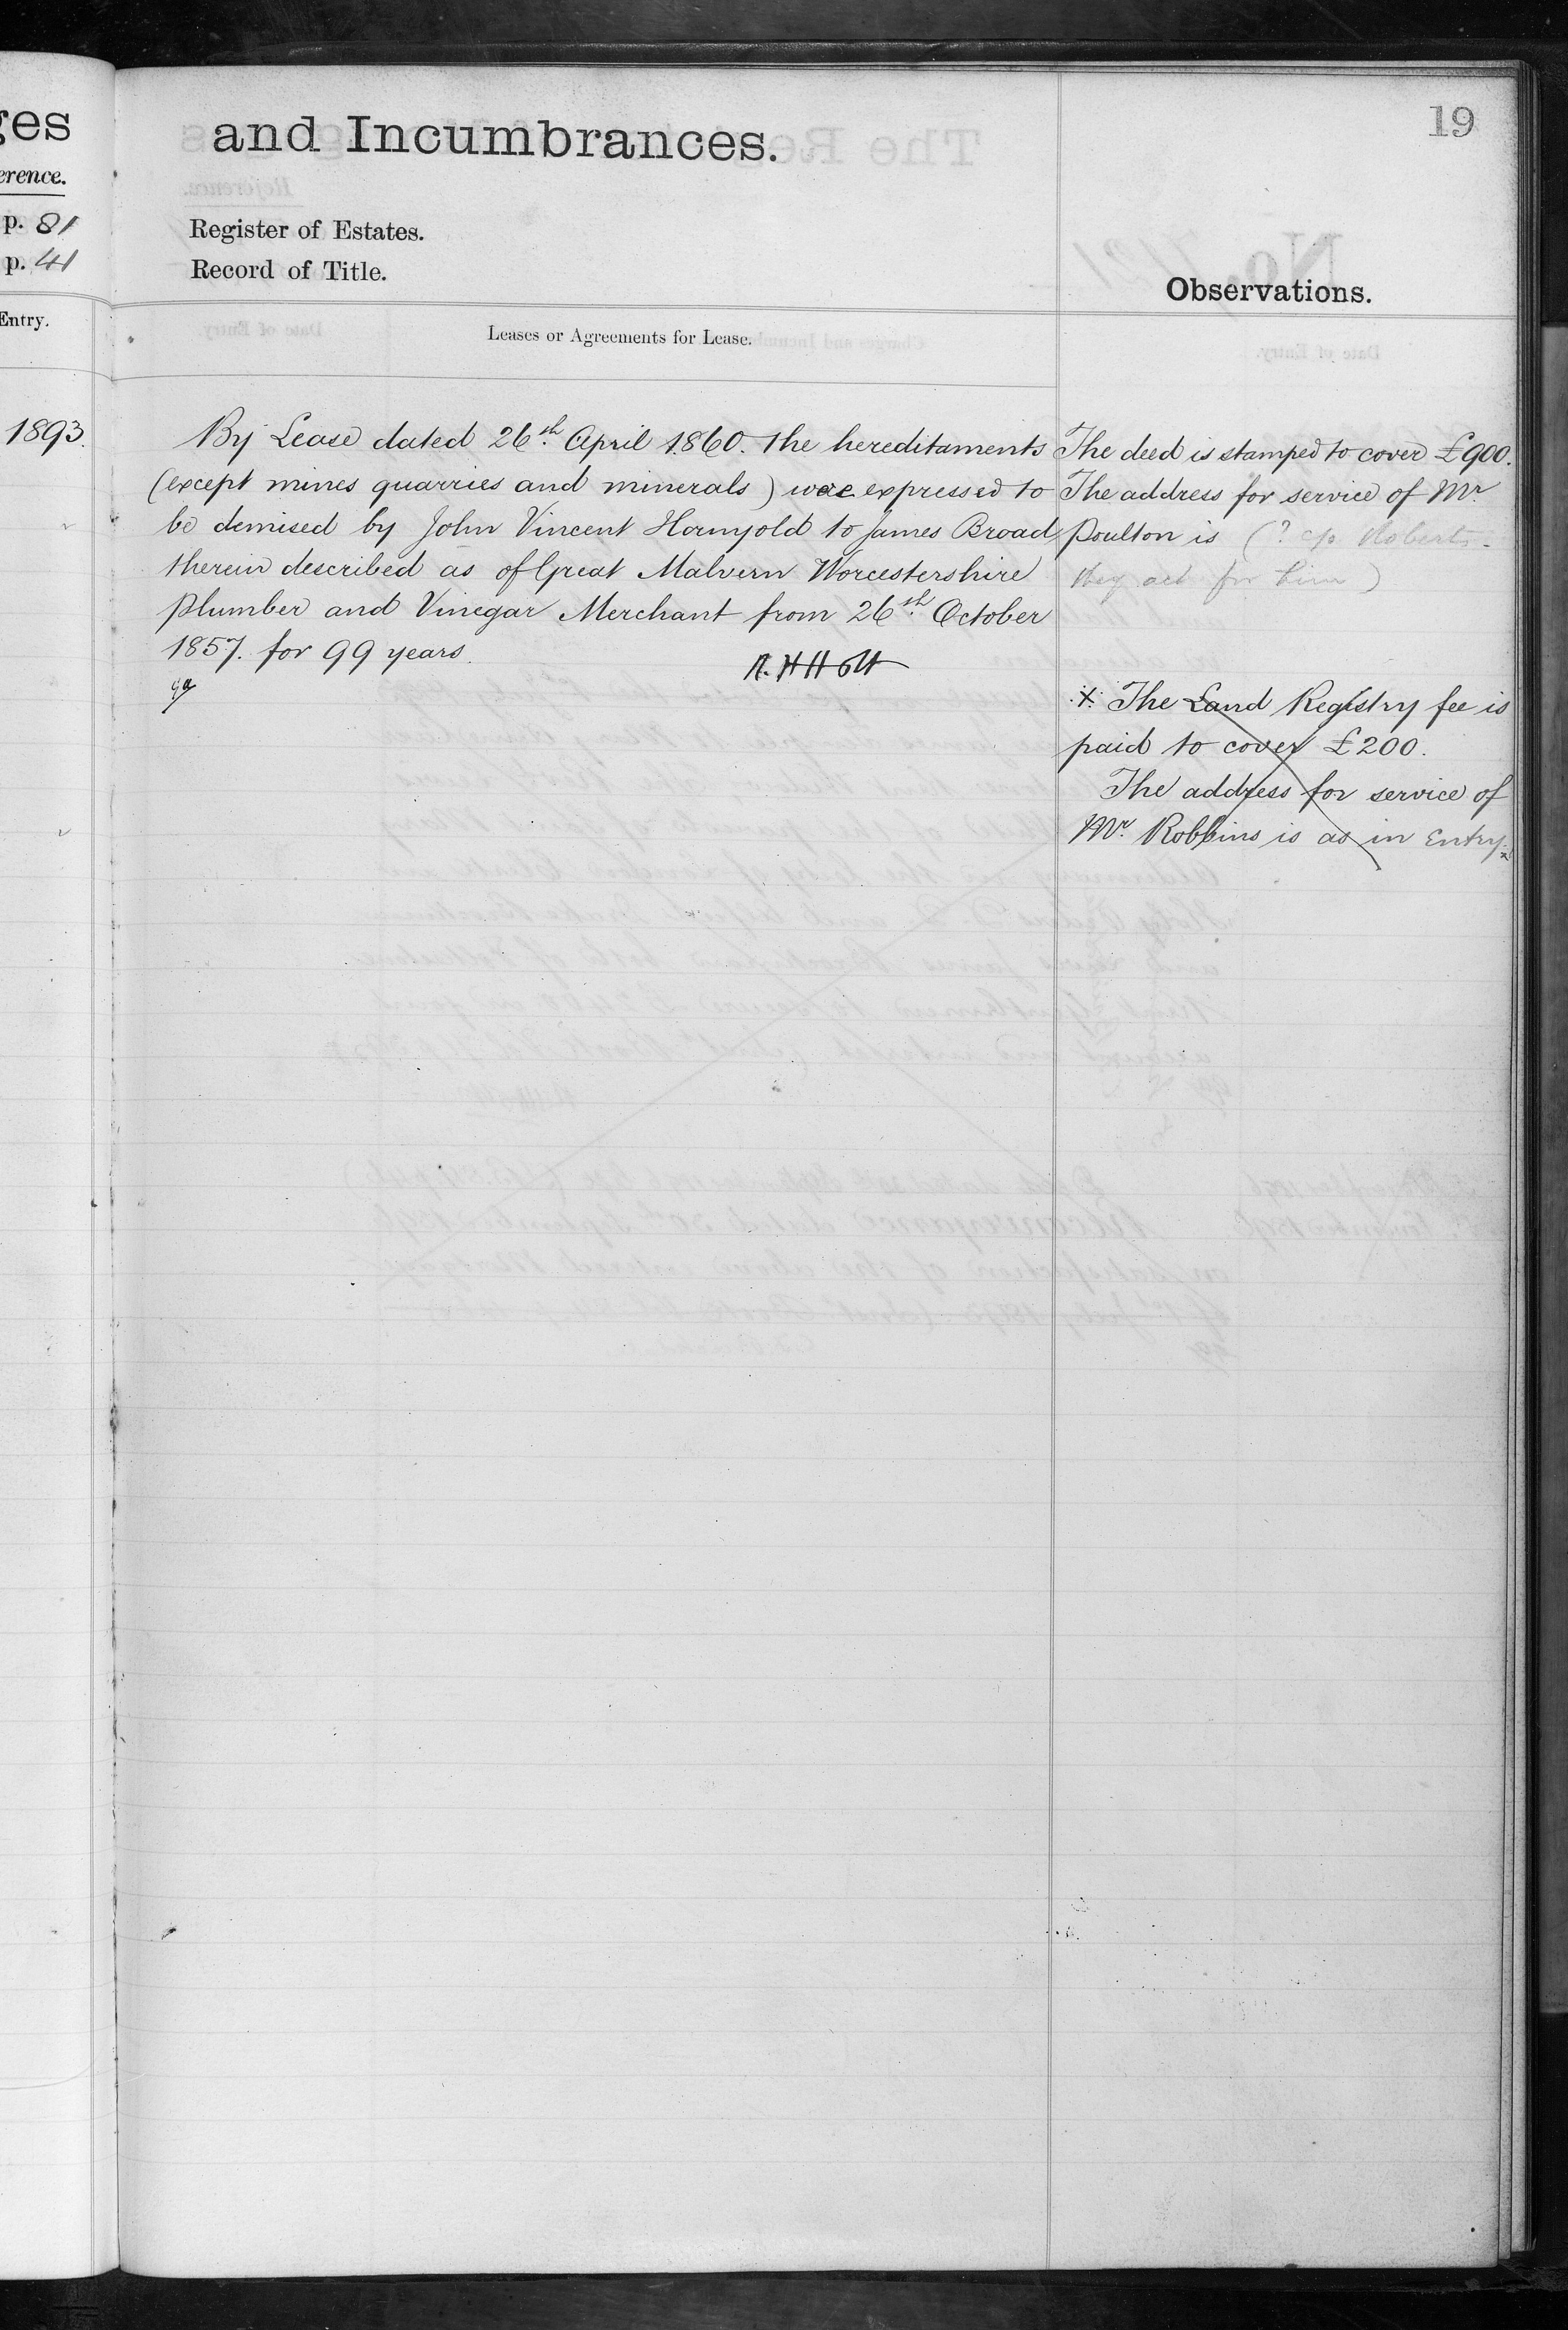 ges
erence.
p. 81
p. 41
Entry.
1893.
19
and Incumbrances.
Register of Estates.
Record of Title.
Leases or Agreements for Lease.
By Lease dated 26th April 1860. the hereditaments
(except mines quarries and minerals) were expressed to
be demised by John Vincent Hornyold to James Broad
therein described as of Great Malvern Worcestershire
Plumber and Vinegar Merchant from 26th October
1857. for 99 years.
Observations.
The deed is stamped to cover £900.
The address for service of Mr.
Poulton is (? c/o Roberts.
they act for him)
X The Land Registry fee is
paid to cover £200.
The address for service of
Mr. Robbins is as in Entry